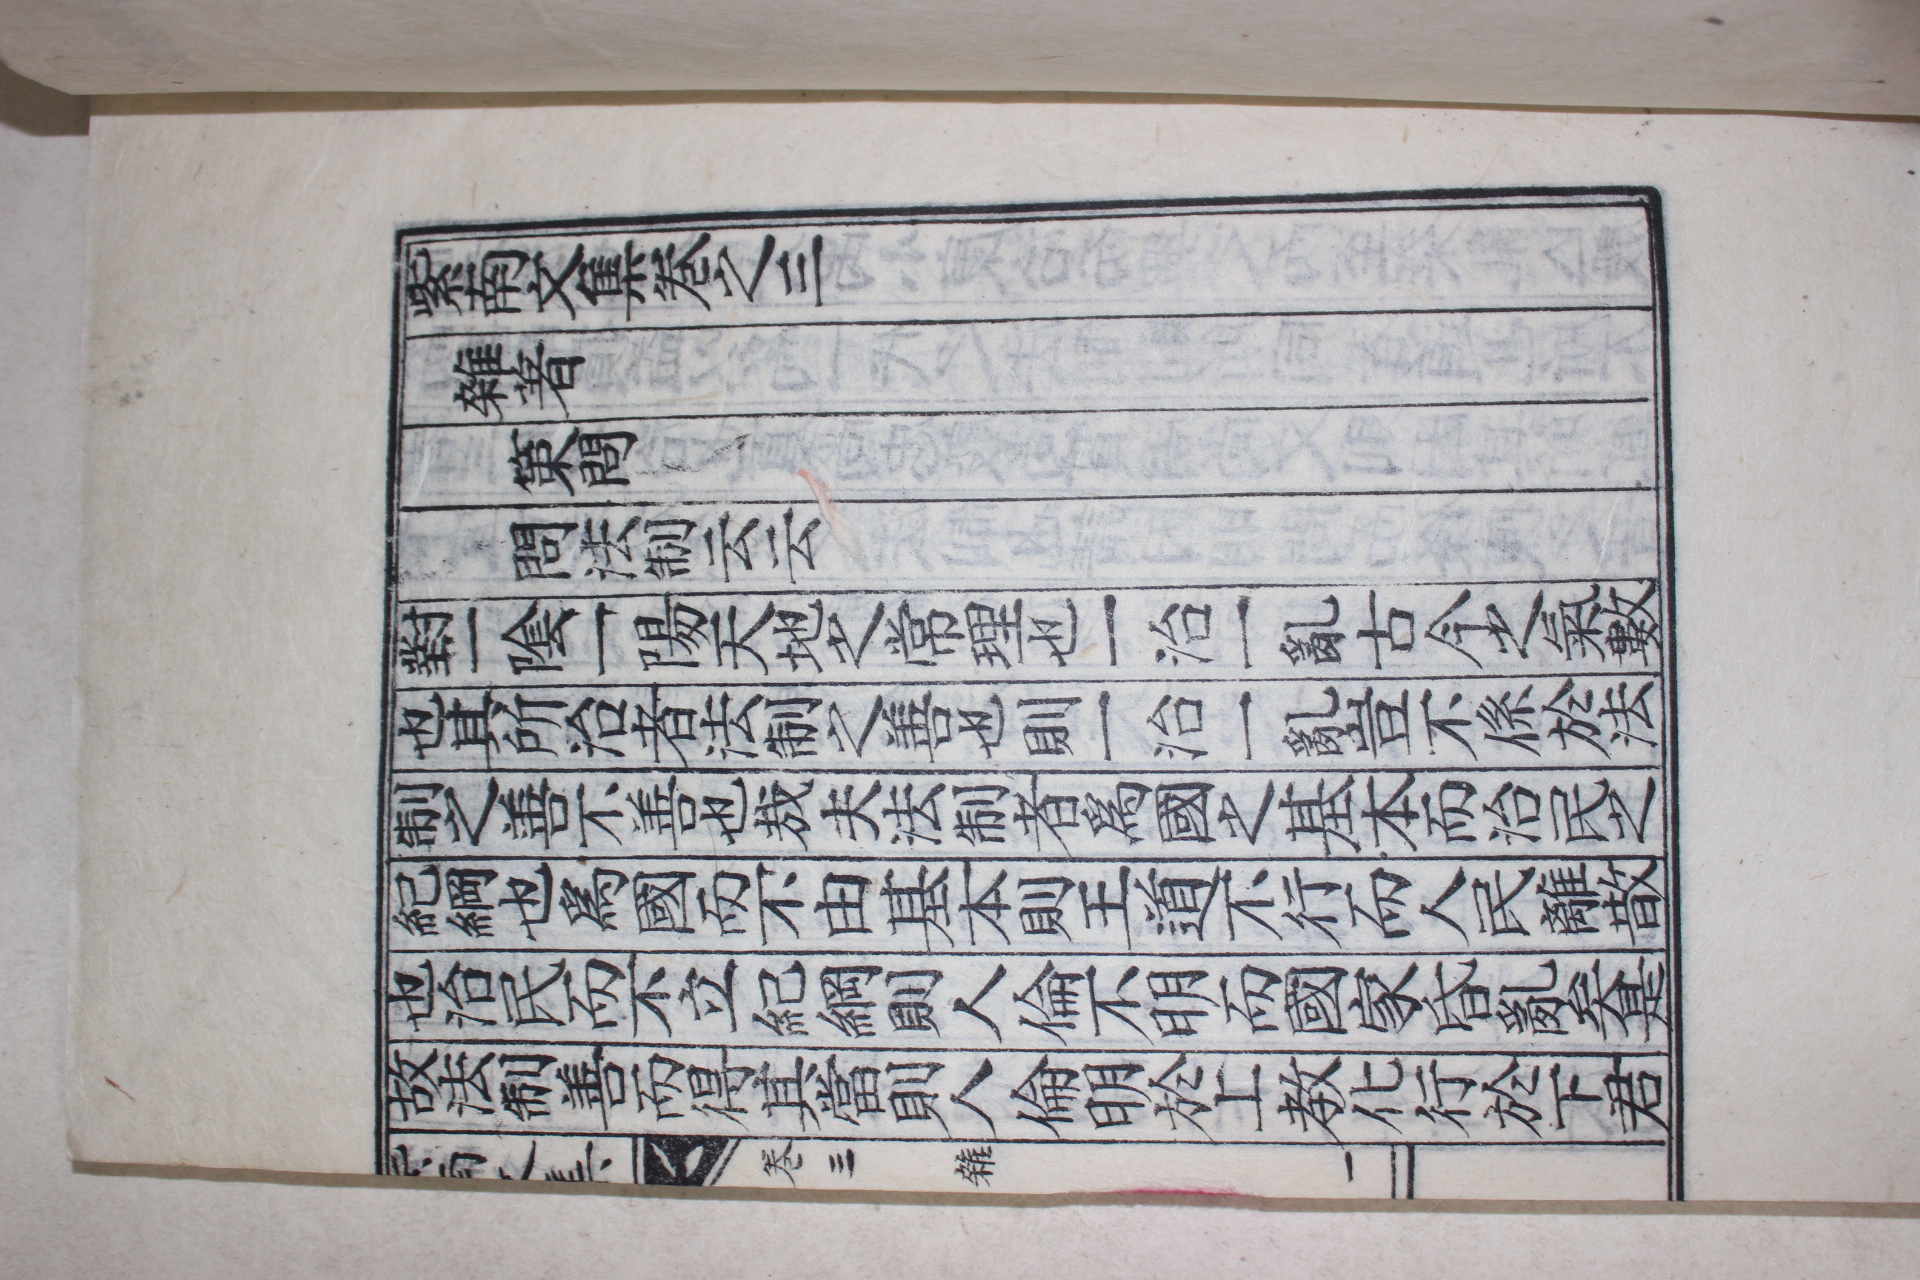 紫南文集卷之三
雜著
策問
問法制云云
對一陰一陽天地之常理也一治一亂古今之氣數
也其所治者法制之善也則一治一亂豈不係於法
制之善不善也哉夫法制者爲國之基本而治民之
紀綱也爲國而不由基本則王道不行而人民離散
也治民而不立紀綱則人倫不明而國家昏亂矣是
故法制善而得其當則人倫明於上教化行於下君
卷三 雜 一